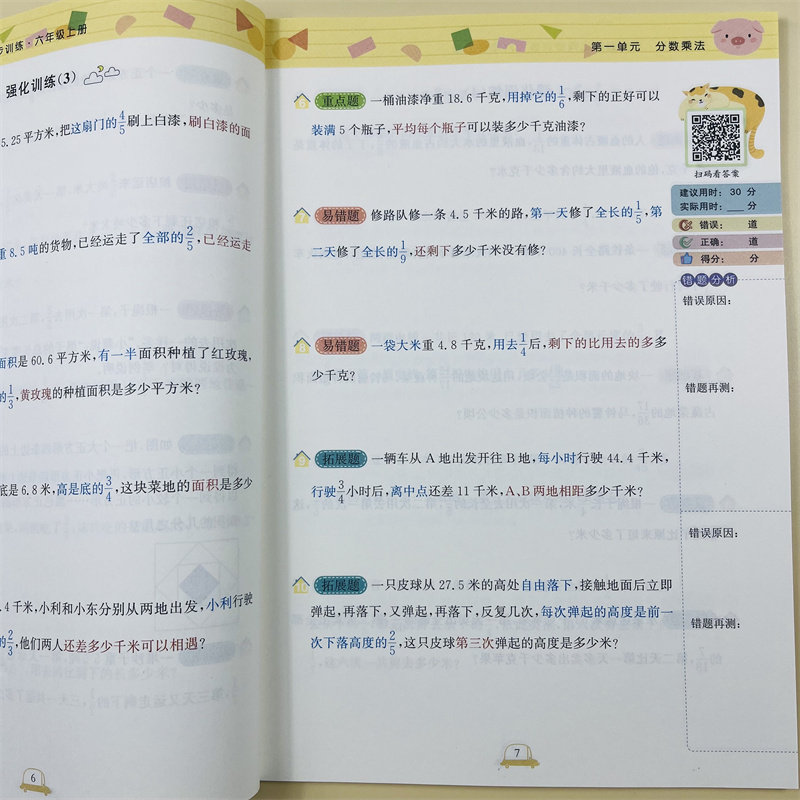 步训练·六年级上册
强化训练(3)
5.25平方米,把这扇门的4/5刷上白漆,刷白漆的面
重8.5吨的货物,已经运走了全部的2/5,已经运走
面积是60.6平方米,有一半面积种植了红玫瑰,
的1/3,黄玫瑰的种植面积是多少平方米?
底是6.8米,高是底的3/4,这块菜地的面积是多少
.4千米,小利和小东分别从两地出发,小利行驶
的2/3,他们两人还差多少千米可以相遇?
6
第一单元 分数乘法
6 重点题 一桶油漆净重18.6千克,用掉它的1/6,剩下的正好可以
装满5个瓶子,平均每个瓶子可以装多少千克油漆?
7 易错题 修路队修一条4.5千米的路,第一天修了全长的1/5,第
二天修了全长的1/9,还剩下多少千米没有修?
8 易错题 一袋大米重4.8千克,用去1/4后,剩下的比用去的多多
少千克?
9 拓展题 一辆车从A地出发开往B地,每小时行驶44.4千米,
行驶3/4小时后,离中点还差11千米,A、B两地相距多少千米?
10 拓展题 一只皮球从27.5米的高处自由落下,接触地面后立即
弹起,再落下,又弹起,再落下,反复几次,每次弹起的高度是前一
次下落高度的2/5,这只皮球第三次弹起的高度是多少米?
扫码看答案
建议用时: 30 分
实际用时: ___分
错误: 道
正确: 道
得分: 分
错题分析
错误原因:
错题再测:
错误原因:
错题再测:
7